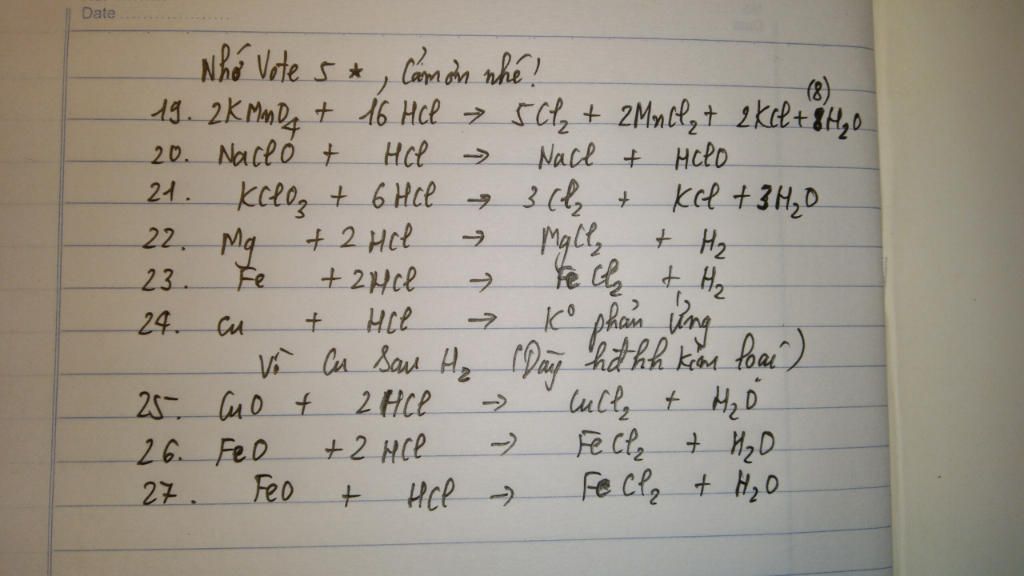 Date
Nhớ Vote 5 ★, Cảm ơn nhé!
19. 2KMnO₄ + 16 HCl → 5Cl₂ + 2MnCl₂ + 2KCl + 8H₂O (8)
20. NaClO + HCl → NaCl + HClO
21. KClO₃ + 6HCl → 3Cl₂ + KCl + 3H₂O
22. Mg + 2HCl → MgCl₂ + H₂
23. Fe + 2HCl → FeCl₂ + H₂
24. Cu + HCl → K° phản ứng
Vì Cu sau H₂ (Dãy hđhh kim loại)
25. CuO + 2HCl → CuCl₂ + H₂O
26. FeO + 2HCl → FeCl₂ + H₂O
27. FeO + HCl → FeCl₂ + H₂O